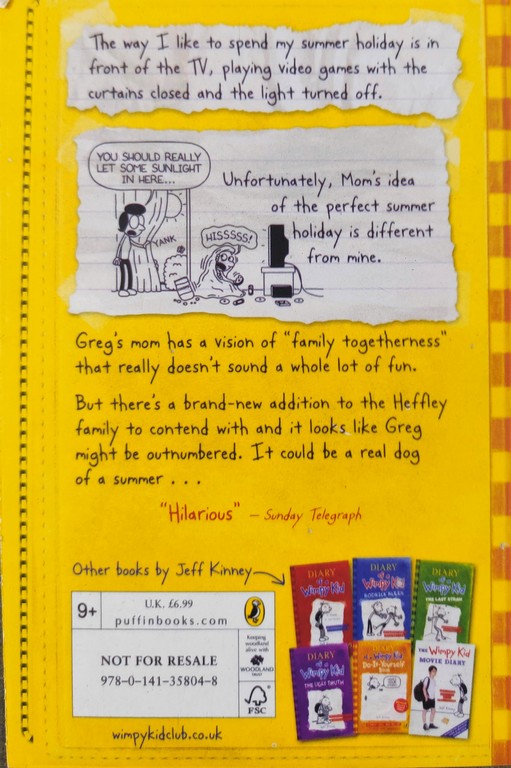 The way I like to spend my summer holiday is in
front of the TV, playing video games with the
curtains closed and the light turned off.
YOU SHOULD REALLY
LET SOME SUNLIGHT
IN HERE...
YANK
HISSSSS!
Unfortunately, Mom's idea
of the perfect summer
holiday is different
from mine.
Greg's mom has a vision of "family togetherness"
that really doesn't sound a whole lot of fun.
But there's a brand-new addition to the Heffley
family to contend with and it looks like Greg
might be outnumbered. It could be a real dog
of a summer . . .
"Hilarious" – Sunday Telegraph
Other books by Jeff Kinney
9+
U.K. £6.99
puffinbooks.com
NOT FOR RESALE
978-0-141-35804-8
Keeping
woodland
alive with
WOODLAND
TRUST
FSC
wimpykidclub.co.uk
DIARY
of a
Wimpy Kid
DIARY
of a
Wimpy Kid
RODRICK RULES
DIARY
of a
Wimpy Kid
THE LAST STRAW
DIARY
of a
Wimpy Kid
THE UGLY TRUTH
Do-It-Yourself
Book
THE Wimpy Kid
MOVIE DIARY